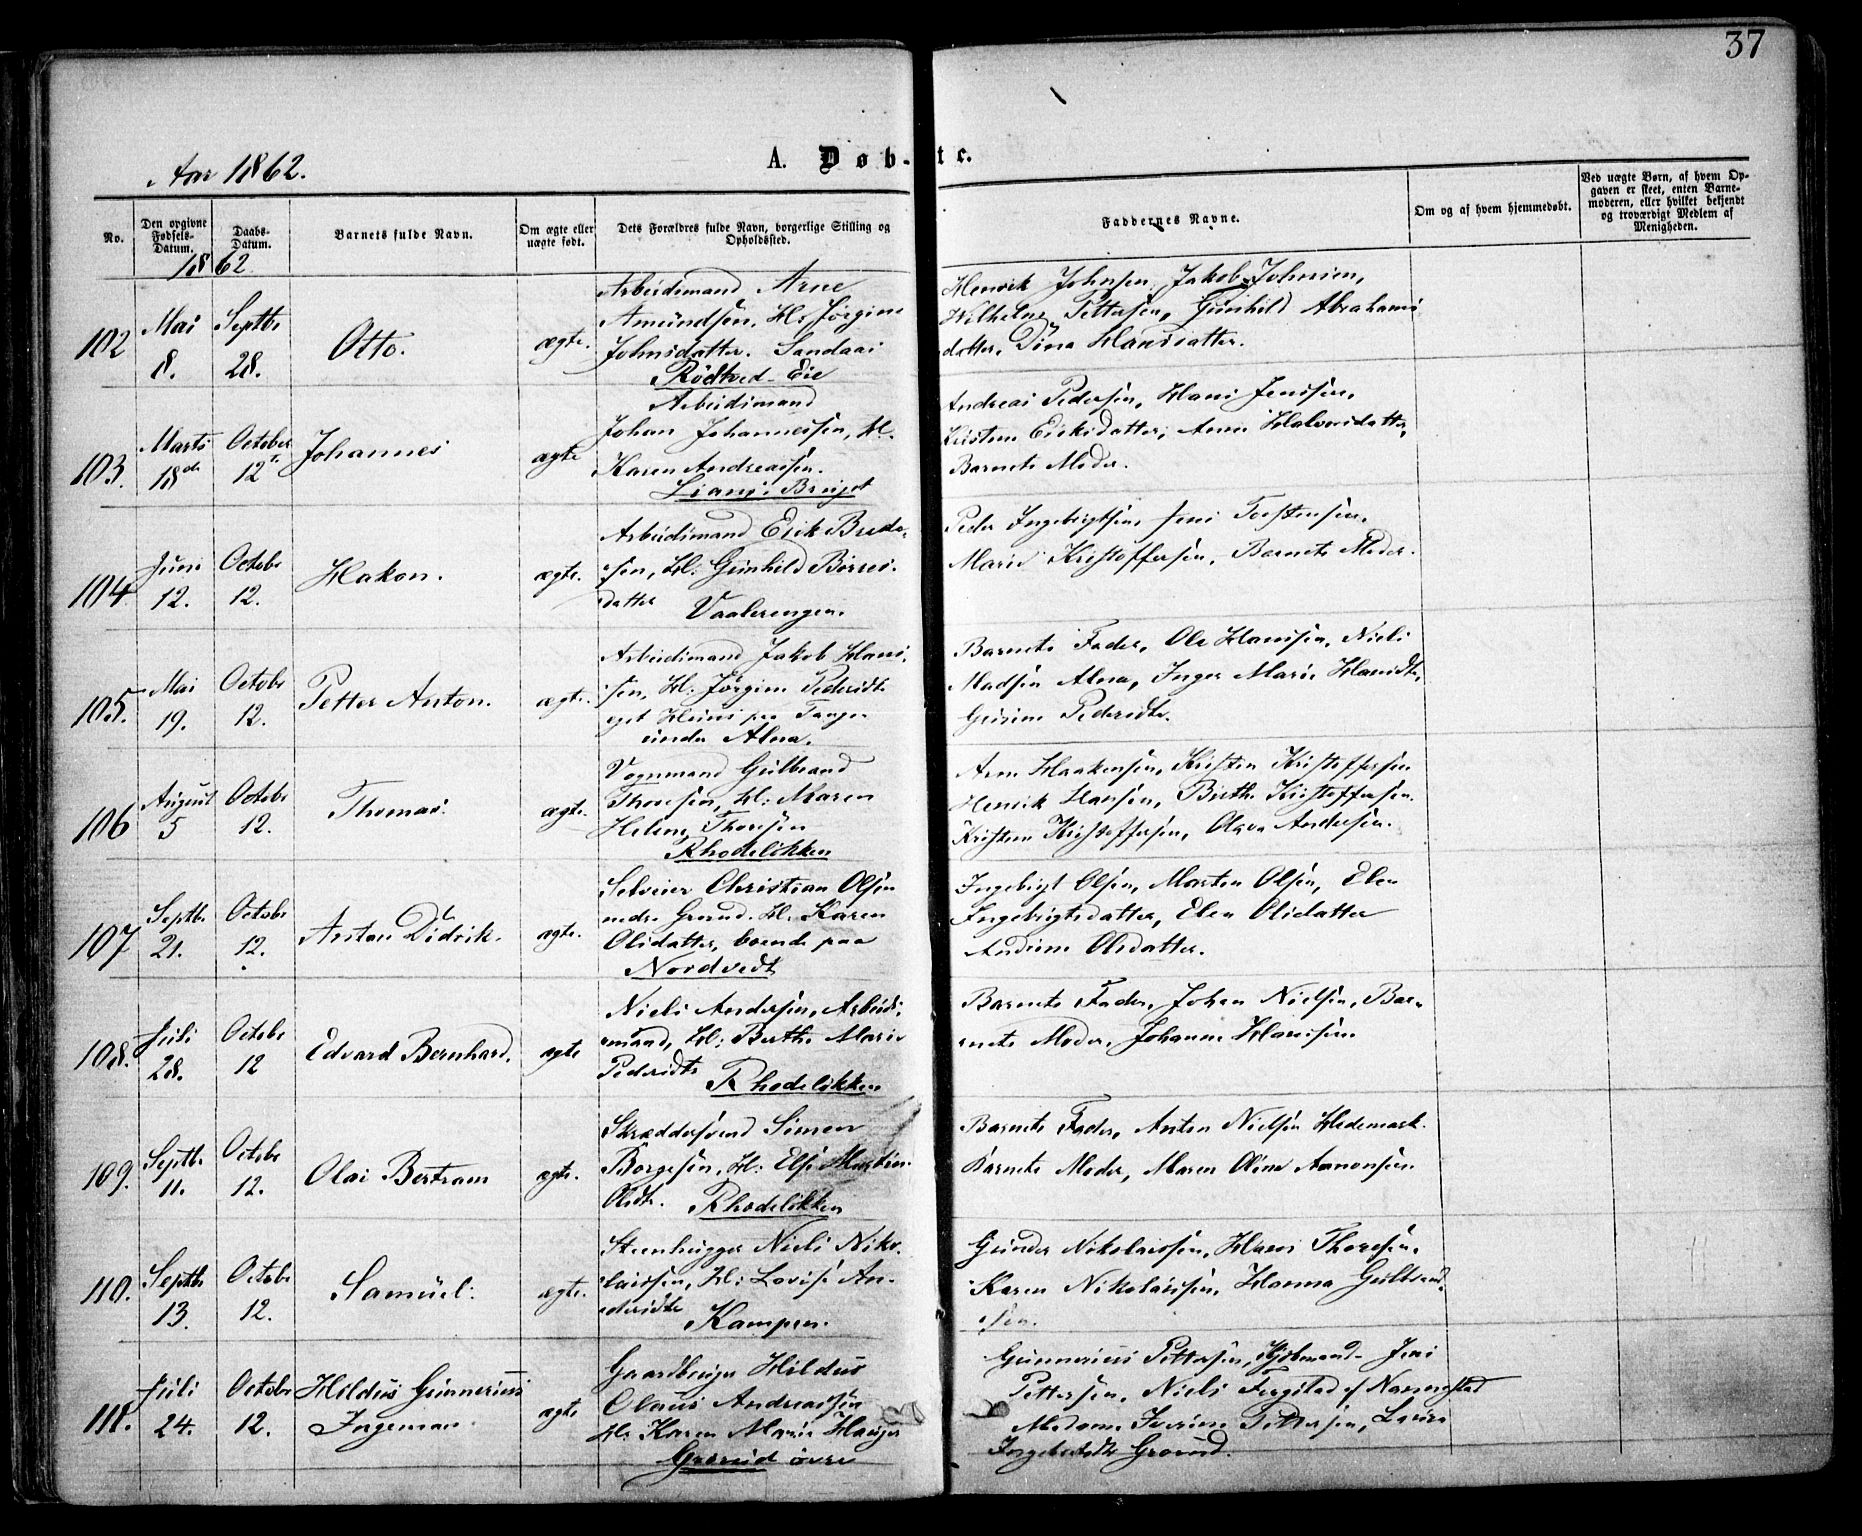 37
Aar 1862.
A. Døb-
te.
No.
Den opgivne Fødsels-Datum.
Daabs-Datum.
Barnets fulde Navn.
Om ægte eller uægte født.
Dets Forældres fulde Navn, borgerlige Stilling og Opholdssted.
Faddernes Navne.
Om og af hvem hjemmedøbt.
Ved uægte Børn, af hvem Op-
gaven er skeet, enten Barne-
moderen, eller hvilket bekjendt
og troværdigt Medlem af
Menigheden.
1862
102
Mai 8.
Septbr 28.
Otto.
ægte.
Arbeidsmand Arne
Amundsen, H: Jørgine
Johnsdatter. Sandaas
Rödtved-Eie
Henrik Johnsen, Jakob Johnsen,
Wilhelm Pettersen, Gunhild Abrahams
datter, Dina Hansdatter.
103.
Marts 18de
October 12te
Johannes
ægte
Arbeidsmand
Johan Johannessen, H.
Karen Andreassen.
Lians Bruget
Andreas Pedersen, Hans Jenssen,
Kristen Eriksdatter, Anne Halvorsdatter,
Barnets Moder.
104
Juni 12.
Octobr 12.
Hakon.
ægte.
Arbeidsmand Erik Brede-
sen, H: Gunhild Börres-
datter
Vaalerengen.
Peder Ingebrigtsen, Jens Torstensen,
Marie Kristoffersen, Barnets Moder.
105.
Mai 19.
Octobr 12.
Petter Anton.
ægte.
Arbeidsmand Jakob Hans-
sen, H: Jørgine Pedersdtr
eget Huus paa Tangen
under Alna.
Barnets Fader, Ole Hanssen, Niels
Madsen Alna, Inger Marie Hansdtr,
Gurine Pedersdtr.
106
August 5
Octobr 12.
Thomas.
ægte.
Vognmand Gulbrand
Thoresen, H: Maren
Helene Thoresen
Rhodelökken
Arne Haakensen, Kristen Kristoffersen
Henrik Hansen, Birthe Kristoffersen.
Kristine Kristoffersen, Olava Andersen.
107
Septbr 21.
Octobr 12.
Anton Didrik.
ægte.
Selveier Christian Olsen
nedre Grorud. H. Karen
Olsdatter, boende paa
Nordvedt
Ingebrigt Olsen, Morten Olsen, Elen
Ingebrigtsdatter, Elen Olsdatter
Andrine Olsdatter.
108.
Juli 28.
Octobr 12
Edvard Bernhard.
ægte
Niels Andersen, Arbeids-
mand, H: Berthe Marie
Pedersdtr
Rhodelökken
Barnets Fader, Johan Nielsen, Bar-
nets Moder, Johanne Hanssen
109.
Septbr 11.
Octobr 12.
Olai Bertram
ægte.
Skræddersvend Simen
Börgesen, H: Else Martin.
Olsdtr.
Rhodelökken
Barnets Fader, Anton Nielsen Hedemark.
Barnets Moder, Maren Oline Aanonsen.
110.
Septbr 13.
Octobr 12.
Samuel.
ægte.
Steenhugger Niels Niko-
laissen, H: Lovise An-
dersdtr
Kampen.
Gunder Nikolaissen, Hans Thoresen,
Karen Nikolaissen, Hanna Gulbrand-
sen.
111.
Juli 24.
Octobr 12.
Hildus Gunnerius
Ingeman
ægte
Gaardbruger Hildus
Olaus Andreassen
H: Karen Marie
Grorud övre
Gunnerius Pettersen, Jens
Pettersen, Niels
Madam Iverine Pettersen, Lovise
Grorud.